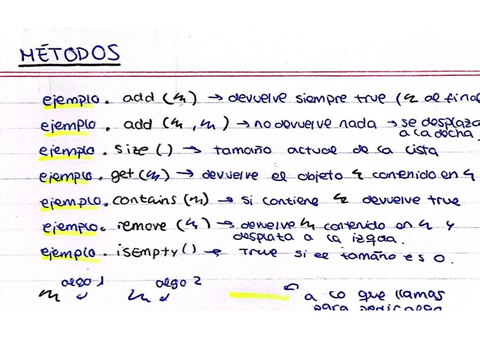 MÉTODOS
ejemplo. add () → devuelve siempre true ( al final
ejemplo. add ( , ) → no devuelve nada → se desplaza
a la dcha.
ejemplo. size () → tamaño actual de la lista
ejemplo. get () → devuelve el objeto contenido en
ejemplo. contains () → si contiene devuelve true
ejemplo. remove () → devuelve contenido en y
desplaza a la izqda.
ejemplo. isempty () → True si el tamaño es 0.
algo 1 algo 2
a lo que llamas
para